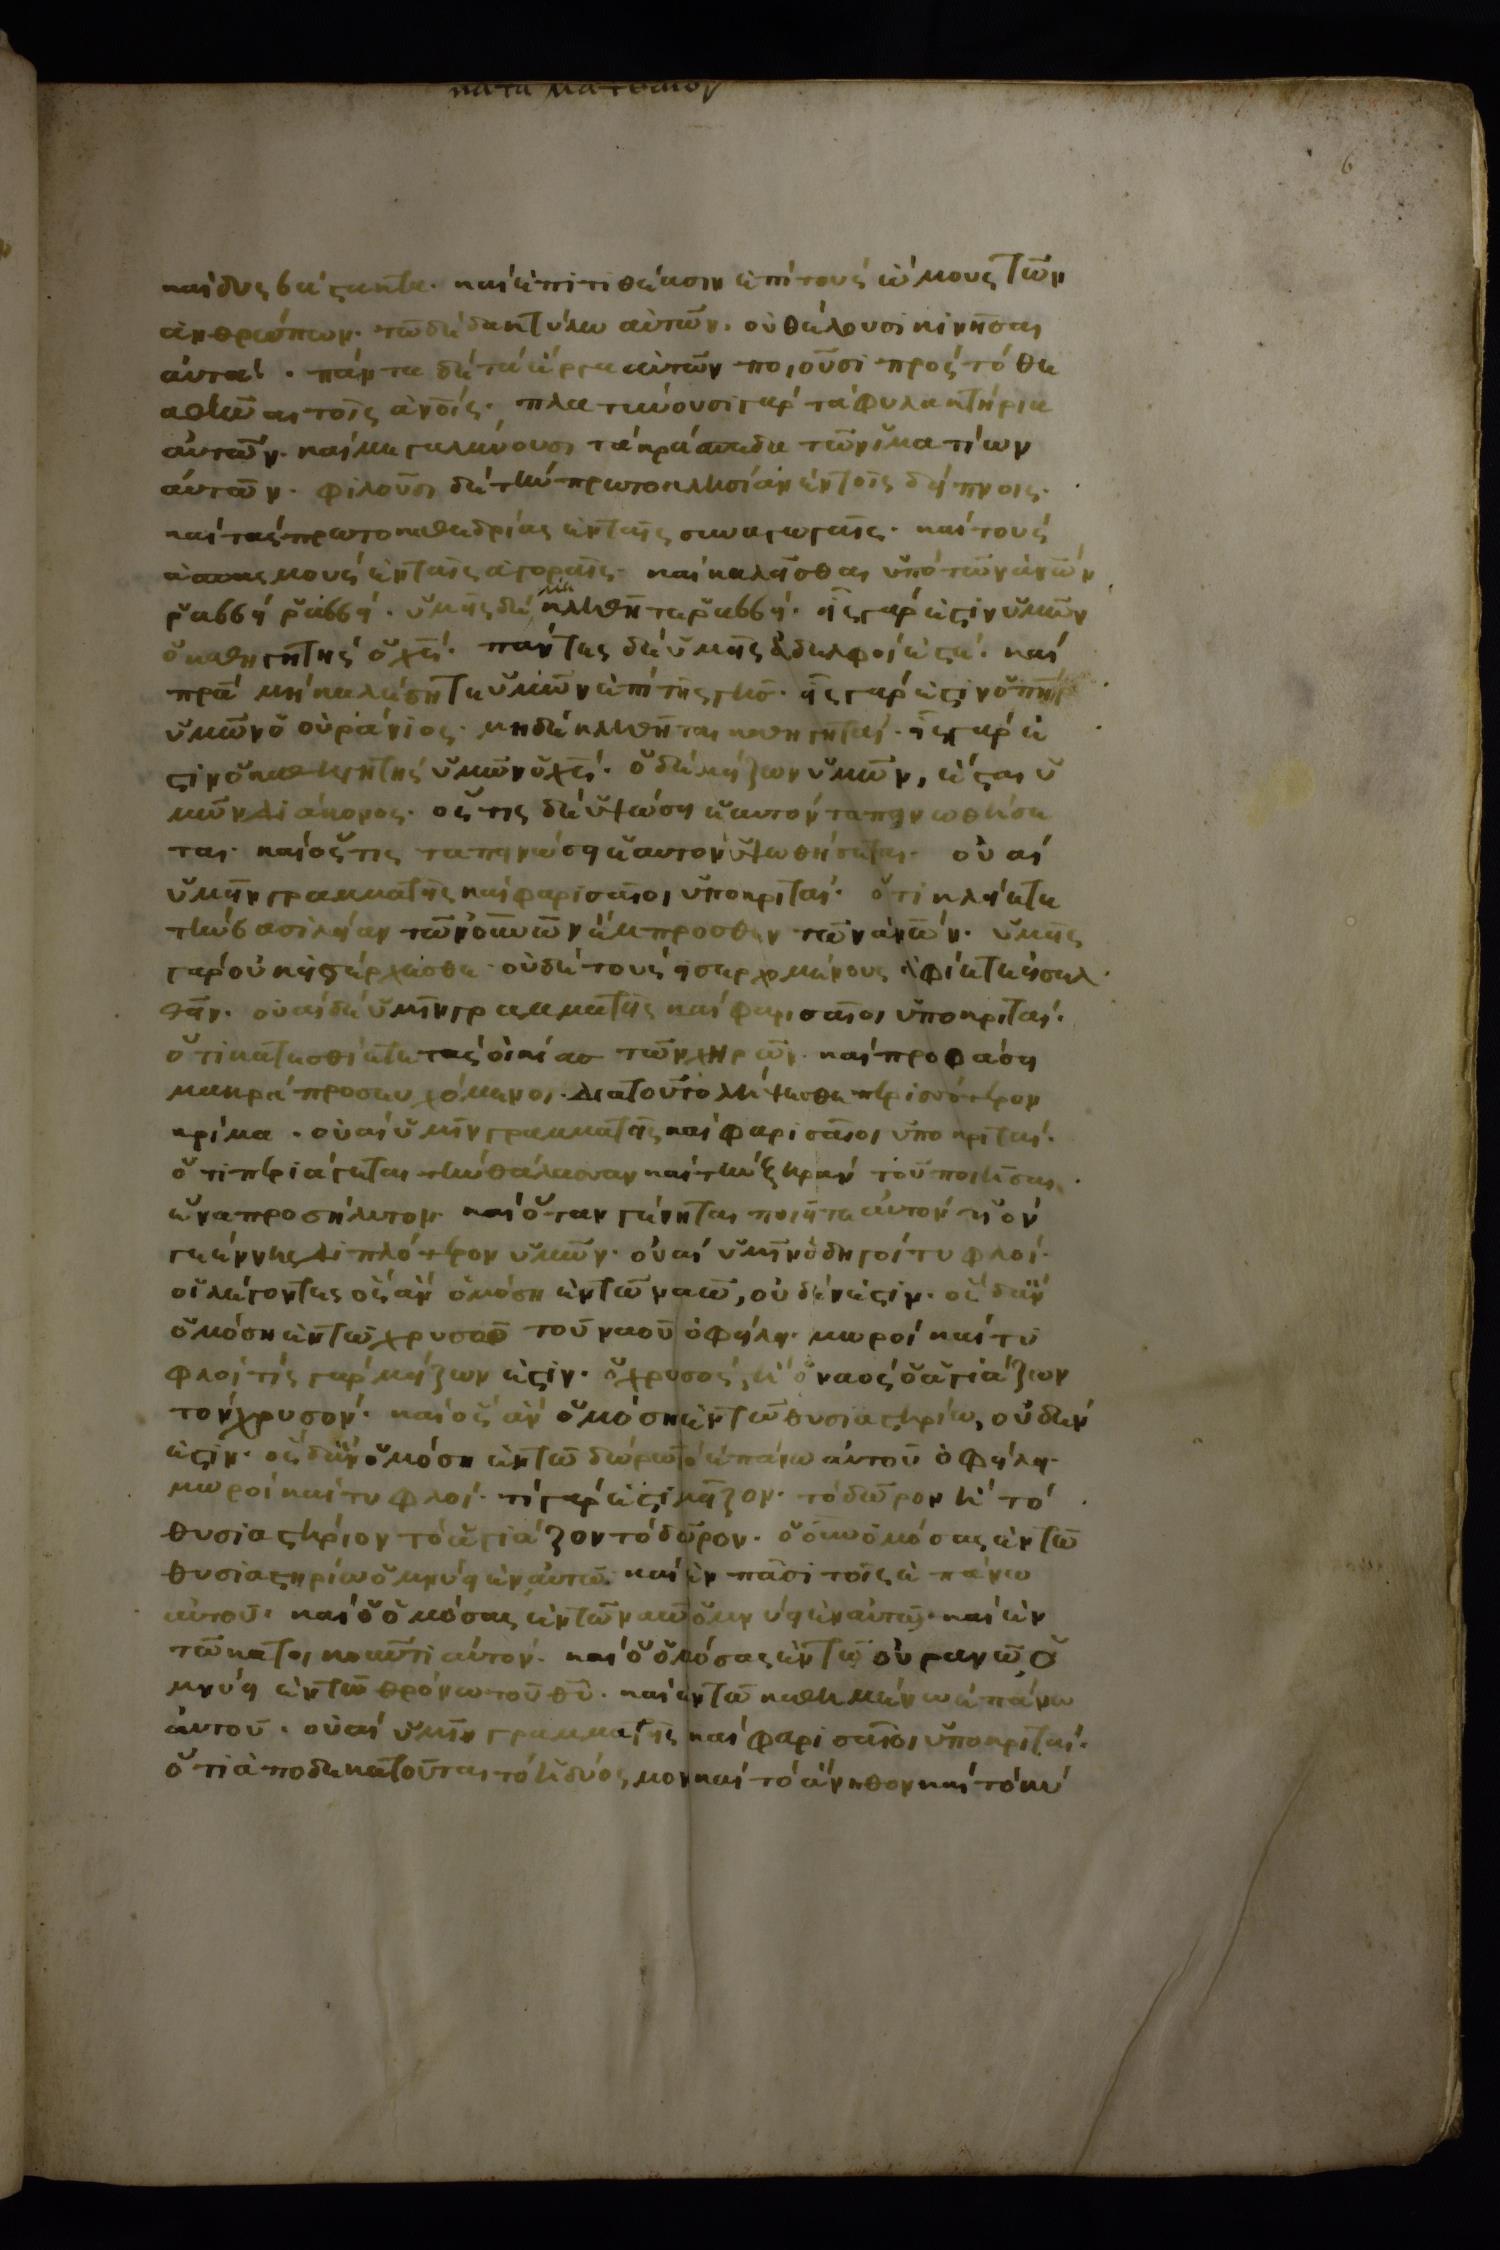 κατα ματθαιον
6
καὶ δυσβάστακτα· καὶ ἐπιτιθέασιν ἐπὶ τοὺς ὤμους τῶν
ἀνθρώπων· τῶ δὲ δακτύλω αὐτῶν· οὐ θέλουσι κινῆσαι
αὐτά· πάντα δὲ τὰ ἔργα αὐτῶν ποιοῦσι πρὸς τὸ θε
αθῆναι τοῖς ἀνοις· πλατύνουσι γὰρ τὰ φυλακτήρια
αὐτῶν· καὶ μεγαλύνουσι τὰ κράσπεδα τῶν ἱματίων
αὐτῶν· φιλοῦσι δὲ τὴν πρωτοκλησίαν ἐν τοῖς δείπνοις·
καὶ τὰς πρωτοκαθεδρίας ἐν ταῖς συναγωγαῖς· καὶ τοὺς
ἀσπασμοὺς ἐν ταῖς ἀγοραῖς· καὶ καλεῖσθαι ὑπὸ τῶν ἀνων
ῥαββεί ῥαββεί· ὑμεῖς δὲ μη κληθῆτε ῥαββεί· εἷς γάρ ἐστιν ὑμῶν
ὁ καθηγητὴς ὁ χς· πάντες δὲ ὑμεῖς ἀδελφοί ἐστέ· καὶ
πρα μὴ καλέσητε ὑμῶν ἐπὶ τῆς γῆς· εἷς γάρ ἐστιν ὁ πηρ
ὑμῶν ὁ οὐράνιος· μηδὲ κληθῆται καθηγηταί· εἷς γάρ ἐ
στιν ὁ καθηγητὴς ὑμῶν ὁ χς· ὁ δὲ μείζων ὑμῶν, ἔσται ὑ
μῶν διάκονος· ὅστις δὲ ὑψώσει ἑαυτὸν ταπεινωθήσε
ται· καὶ ὅστις ταπεινώσει ἑαυτὸν ὑψωθήσεται· οὐαὶ
ὑμῖν γραμματεῖς καὶ φαρισαῖοι ὑποκριταί· ὅτι κλείετε
τὴν βασιλείαν τῶν οὐνῶν ἔμπροσθεν τῶν ἀνων· ὑμεῖς
γὰρ οὐκ εἰσέρχεσθε· οὐδὲ τοὺς εἰσερχομένους ἀφίετε εἰσελ
θεῖν· οὐαὶ δὲ ὑμῖν γραμματεῖς καὶ φαρισαῖοι ὑποκριταί·
ὅτι κατεσθίετε τὰς οἰκίας τῶν χηρῶν· καὶ προφάσει
μακρὰ προσευχόμενοι· διατοῦτο λήψεσθε περισσότερον
κρίμα· οὐαὶ ὑμῖν γραμματεῖς καὶ φαρισαῖοι ὑποκριταί·
ὅτι περιάγεται τὴν θάλασσαν καὶ τὴν ξηρὰν τοῦ ποιῆσαι
ἕνα προσήλυτον· καὶ ὅταν γένηται ποιεῖτε αὐτὸν υἱὸν
γεέννης διπλότερον ὑμῶν· οὐαὶ ὑμῖν ὁδηγοὶ τυφλοί·
οἱ λέγοντες ὃς ἂν ὀμόση ἐν τῶ ναῶ, οὐδέν ἐστιν· ὃς δ' ἂν
ὀμόση ἐν τῶ χρυσῶ τοῦ ναοῦ ὀφείλει· μωροὶ καὶ τυ
φλοὶ τίς γὰρ μείζων ἐστίν· ὁ χρυσός, ἢ ὁ ναὸς ὁ ἁγιάζων
τὸν χρυσόν· καὶ ὃς ἂν ὀμόση ἐν τῶ θυσιαστηρίω, οὐδέν
ἐστιν· ὃς δ' ἂν ὀμόση ἐν τῶ δώρω τῶ ἐπάνω αὐτοῦ ὀφείλει·
μωροὶ καὶ τυφλοί· τί γάρ ἐστι μεῖζον· τὸ δῶρον ἢ τὸ
θυσιαστήριον τὸ ἁγιάζον τὸ δῶρον· ὁ οὖν ὀμόσας ἐν τῶ
θυσιαστηρίω ὀμνύει ἐν αὐτῶ· καὶ ἐν πᾶσι τοῖς ἐπάνω
αὐτοῦ· καὶ ὁ ὀμόσας ἐν τῶ ναῶ ὀμνύει ἐν αὐτῶ· καὶ ἐν
τῶ κατοικοῦντι αὐτόν· καὶ ὁ ὀμόσας ἐν τῶ οὐρανῶ ὀ
μνύει ἐν τῶ θρόνω τοῦ θυ· καὶ ἐν τῶ καθημένω ἐπάνω
αὐτοῦ· οὐαὶ ὑμῖν γραμματεῖς καὶ φαρισαῖοι ὑποκριταί·
ὅτι ἀποδεκατοῦται τὸ ἡδύοσμον καὶ τὸ ἄνηθον καὶ τὸ κύ